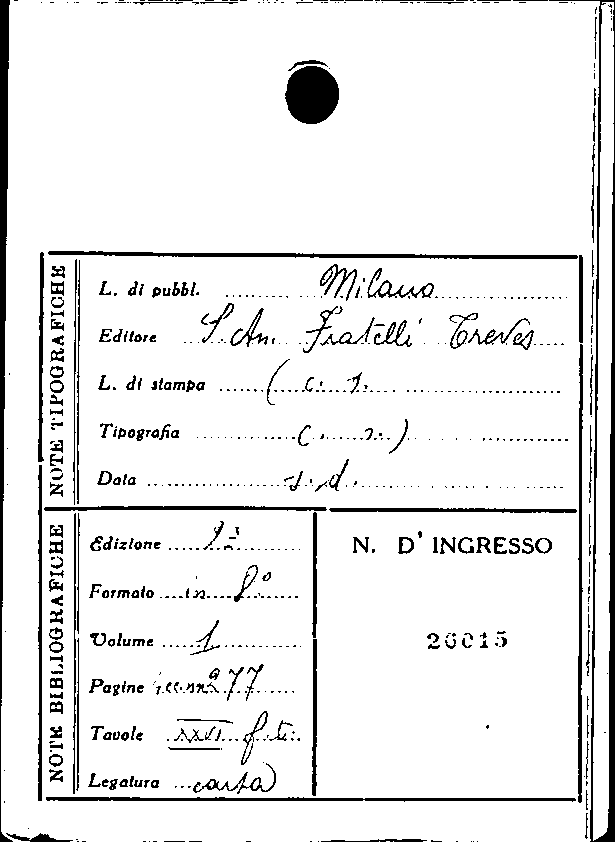 NOTE TIPOGRAFICHE
L. di pubbl. Milano
Editore S. An. Fratelli Treves
L. di stampa ( c. s.
Tipografia c. s. )
Data s. d.
NOTE BIBLIOGRAFICHE
Edizione 1ª
Formato in 8º
Volume 1
Pagine 277
Tavole XXVI f. t.
Legatura carta
N. D'INGRESSO
26015